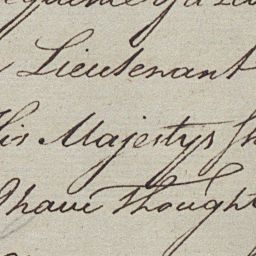 Lieutenant
His Majestys Sh
I have Thought